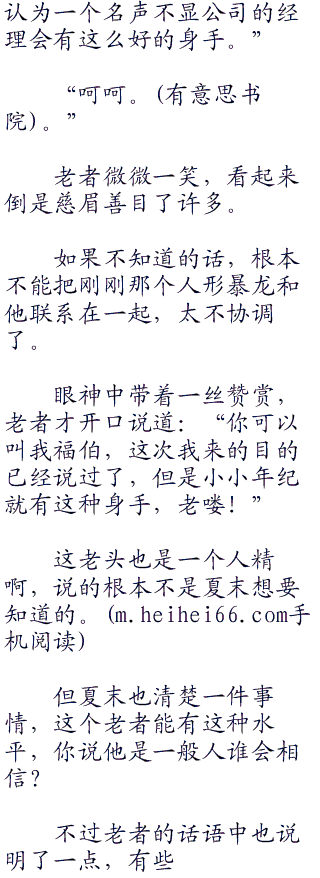 认为一个名声不显公司的经
理会有这么好的身手。”
“呵呵。(有意思书
院)。”
老者微微一笑，看起来
倒是慈眉善目了许多。
如果不知道的话，根本
不能把刚刚那个人形暴龙和
他联系在一起，太不协调
了。
眼神中带着一丝赞赏，
老者才开口说道：“你可以
叫我福伯，这次我来的目的
已经说过了，但是小小年纪
就有这种身手，老喽！”
这老头也是一个人精
啊，说的根本不是夏末想要
知道的。(m.heihei66.com手
机阅读)
但夏末也清楚一件事
情，这个老者能有这种水
平，你说他是一般人谁会相
信？
不过老者的话语中也说
明了一点，有些